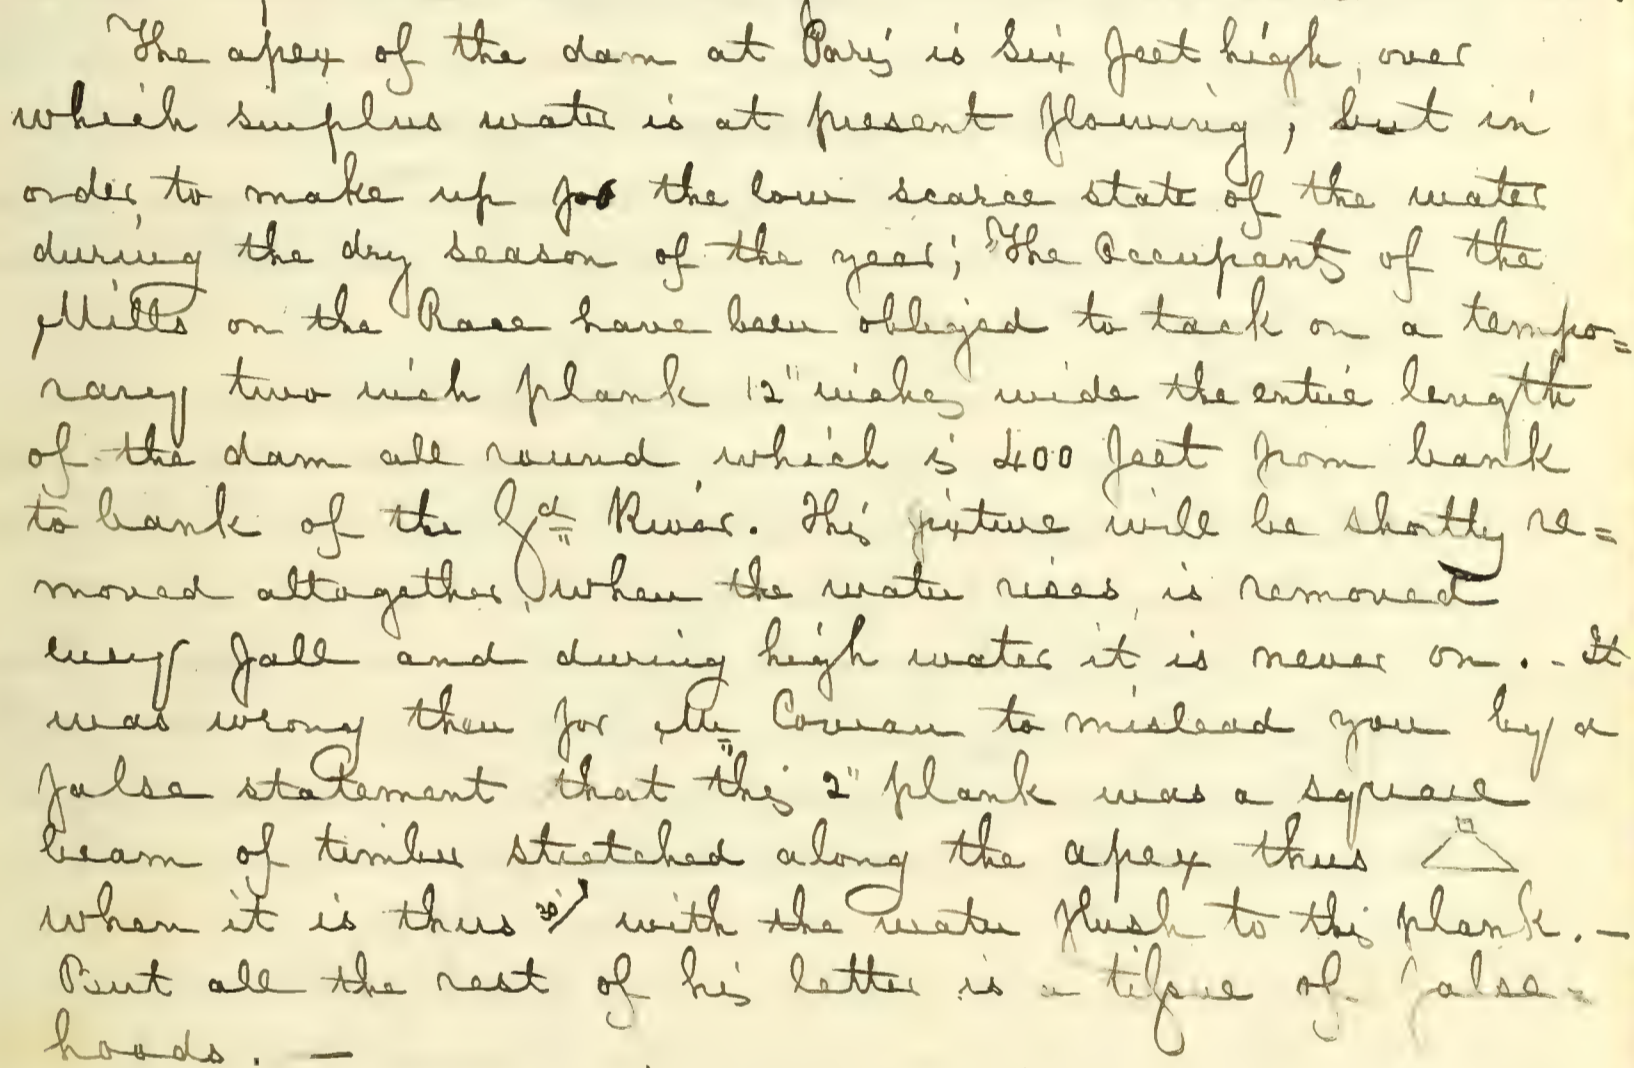 The apex of the dam at Paris is Six feet high, over
which surplus water is at present flowing; but in
order, to make up for the low scarce state of the water
during the dry season of the year; The Occupants of the
Mills on the Race have been obliged to tack on a tempo=
rary two inch plank 12" inches wide the entire length
of the dam all round which is 400 feet from bank
to bank of the Gd River. This fixture will be shortly re=
moved altogether, when the water rises, is removed
every fall and during high water it is never on. - It
was wrong then for Mr to mislead you by a
false statement that this 2" plank was a square
beam of timber stretched along the apex thus
when it is thus with the water flush to this plank. —
But all the rest of his letter is a tissue of false=
hoods. —